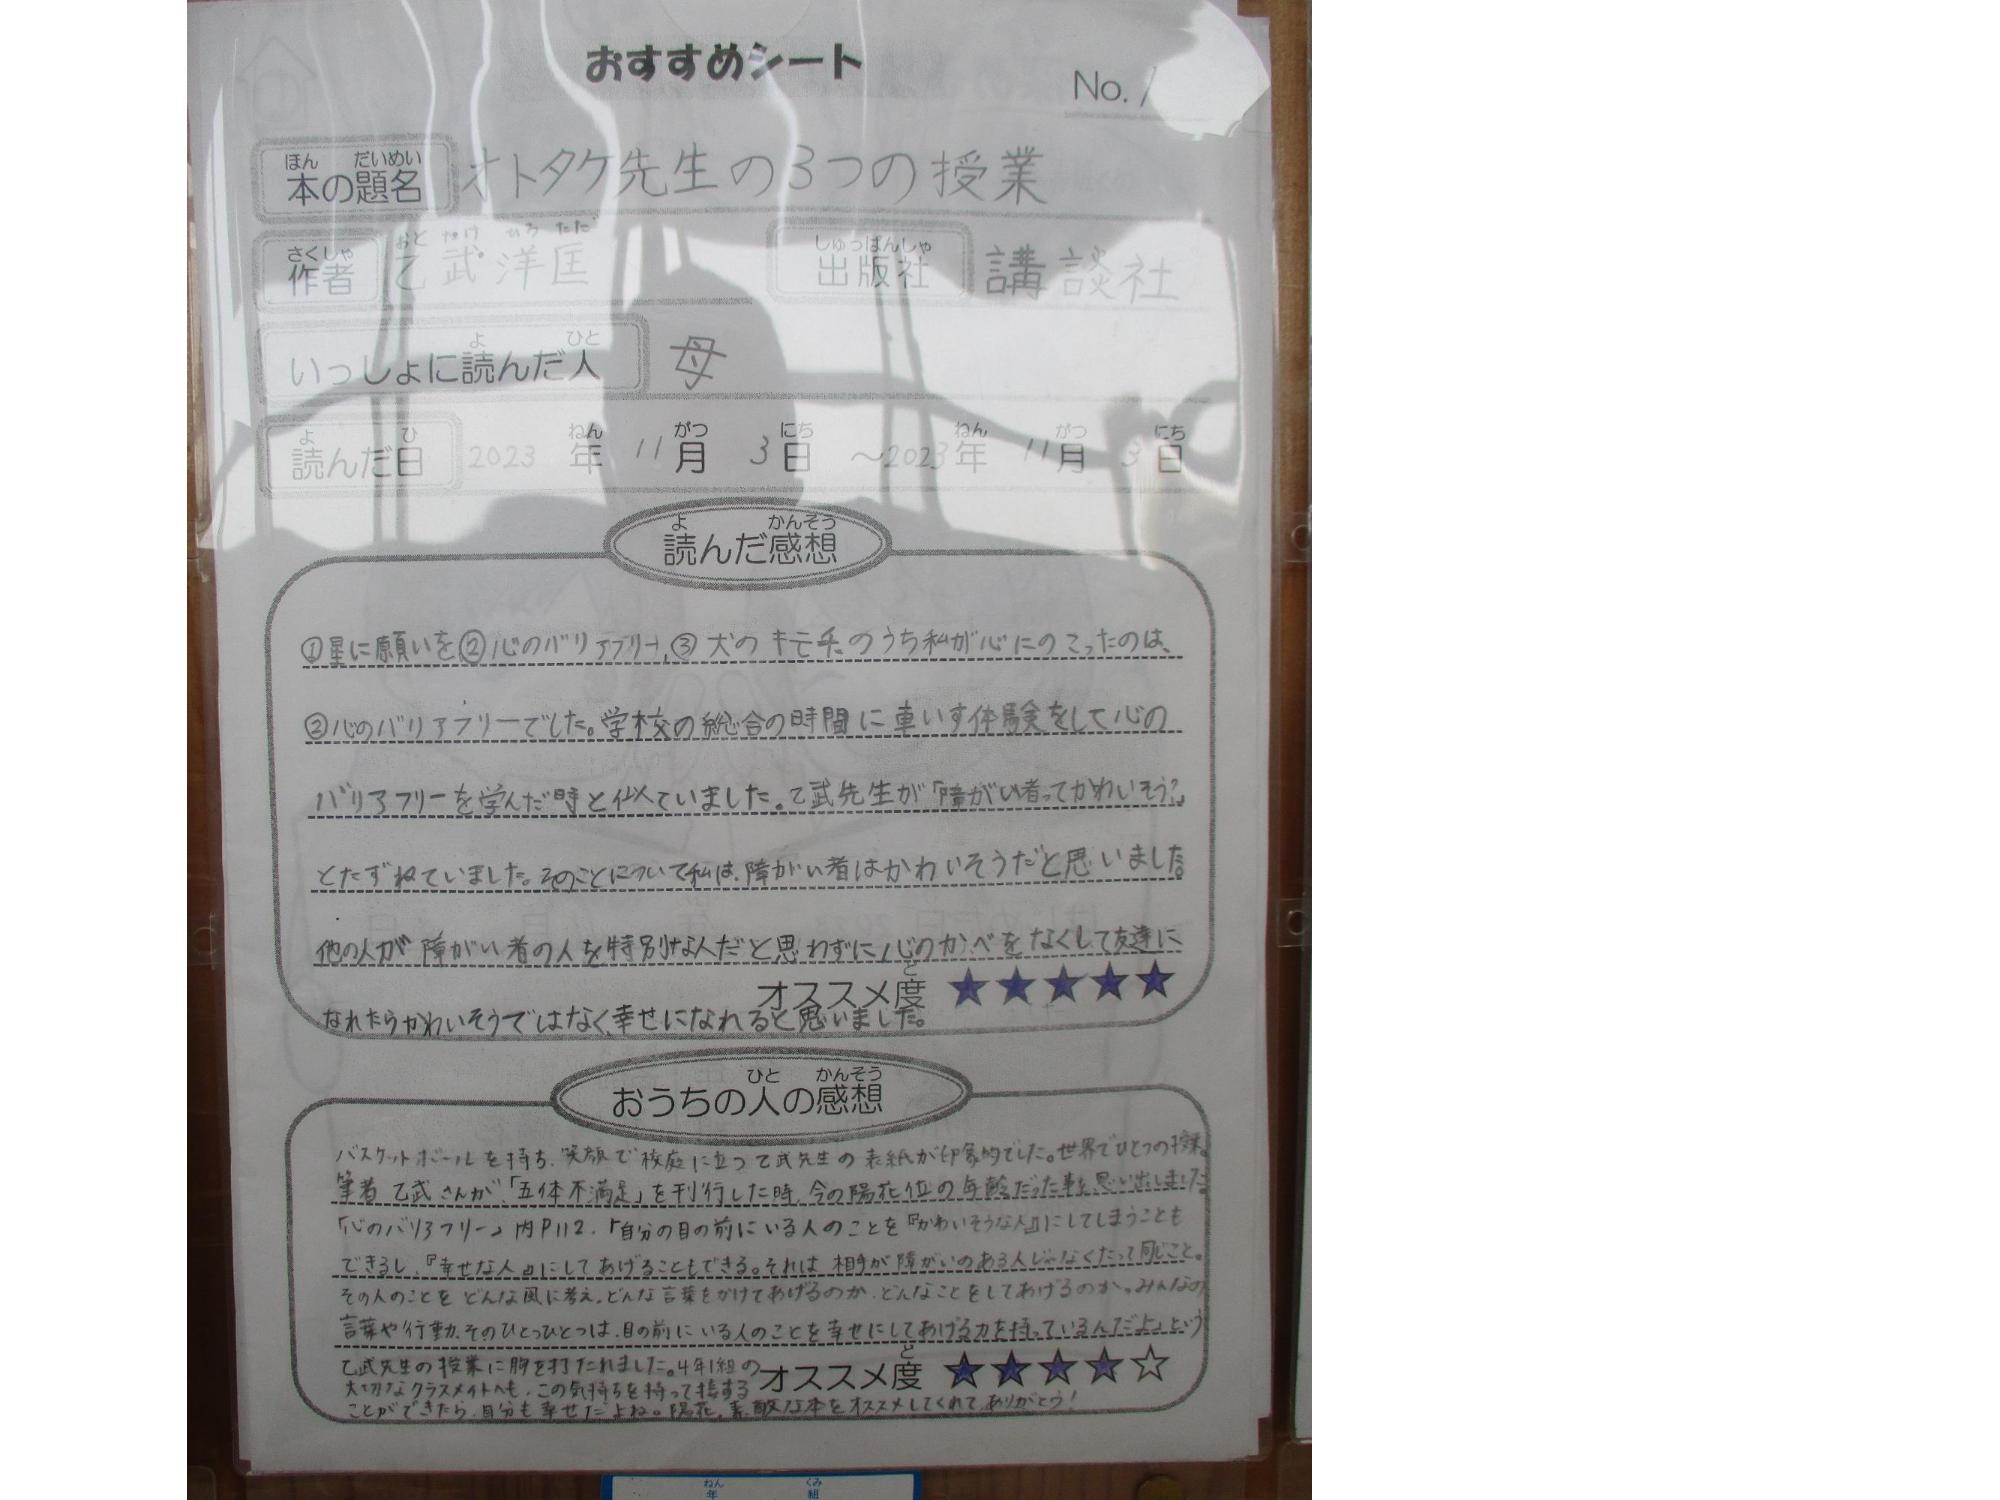 おすすめシート
No. 1
ほん だいめい
本の題名 オトタケ先生の3つの授業
おと たけ ひろ ただ
さくしゃ しゅっぱんしゃ
作者 乙武洋匡 出版社 講談社
よ ひと
いっしょに読んだ人 母
よ ひ ねん がつ にち ねん がつ にち
読んだ日 2023年11月3日～2023年11月3日
よ かんそう
読んだ感想
①星に願いを②心のバリアフリー,③犬のキモチのうち私が心にのこったのは、
②心のバリアフリーでした。学校の総合の時間に車いす体験をして心の
バリアフリーを学んだ時と似ていました。乙武先生が「障がい者ってかわいそう?」
とたずねていました。そのことについて私は、障がい者はかわいそうだと思いました。
他の人が障がい者の人を特別な人だと思わずに心のかべをなくして友達に
ど
オススメ度 ★★★★★
なれたらかわいそうではなく、幸せになれると思いました。
ひと かんそう
おうちの人の感想
バスケットボールを持ち、笑顔で校庭に立つ乙武先生の表紙が印象的でした。世界でひとつの授業。
筆者 乙武さんが、「五体不満足」を刊行した時、今の陽花位の年齢だった事を、思い出しました。
「心のバリアフリー」内P112.「自分の目の前にいる人のことを『かわいそうな人』にしてしまうことも
できるし、『幸せな人』にしてあげることもできる。それは 相手が障がいのある人じゃなくたって同じこと。
その人のことを どんな風に考え、どんな言葉をかけてあげるのか、どんなことをしてあげるのか。みんなの
言葉や行動、そのひとつひとつは、目の前にいる人のことを幸せにしてあげる力を持っているんだよ」という
乙武先生の授業に胸を打たれました。4年1組の
ど
オススメ度 ★★★★☆
大切なクラスメイトへも、この気持ちを持って接する
ことができたら、自分も幸せだよね。陽花、素敵な本をオススメしてくれて、ありがとう!
ねん くみ
年 組